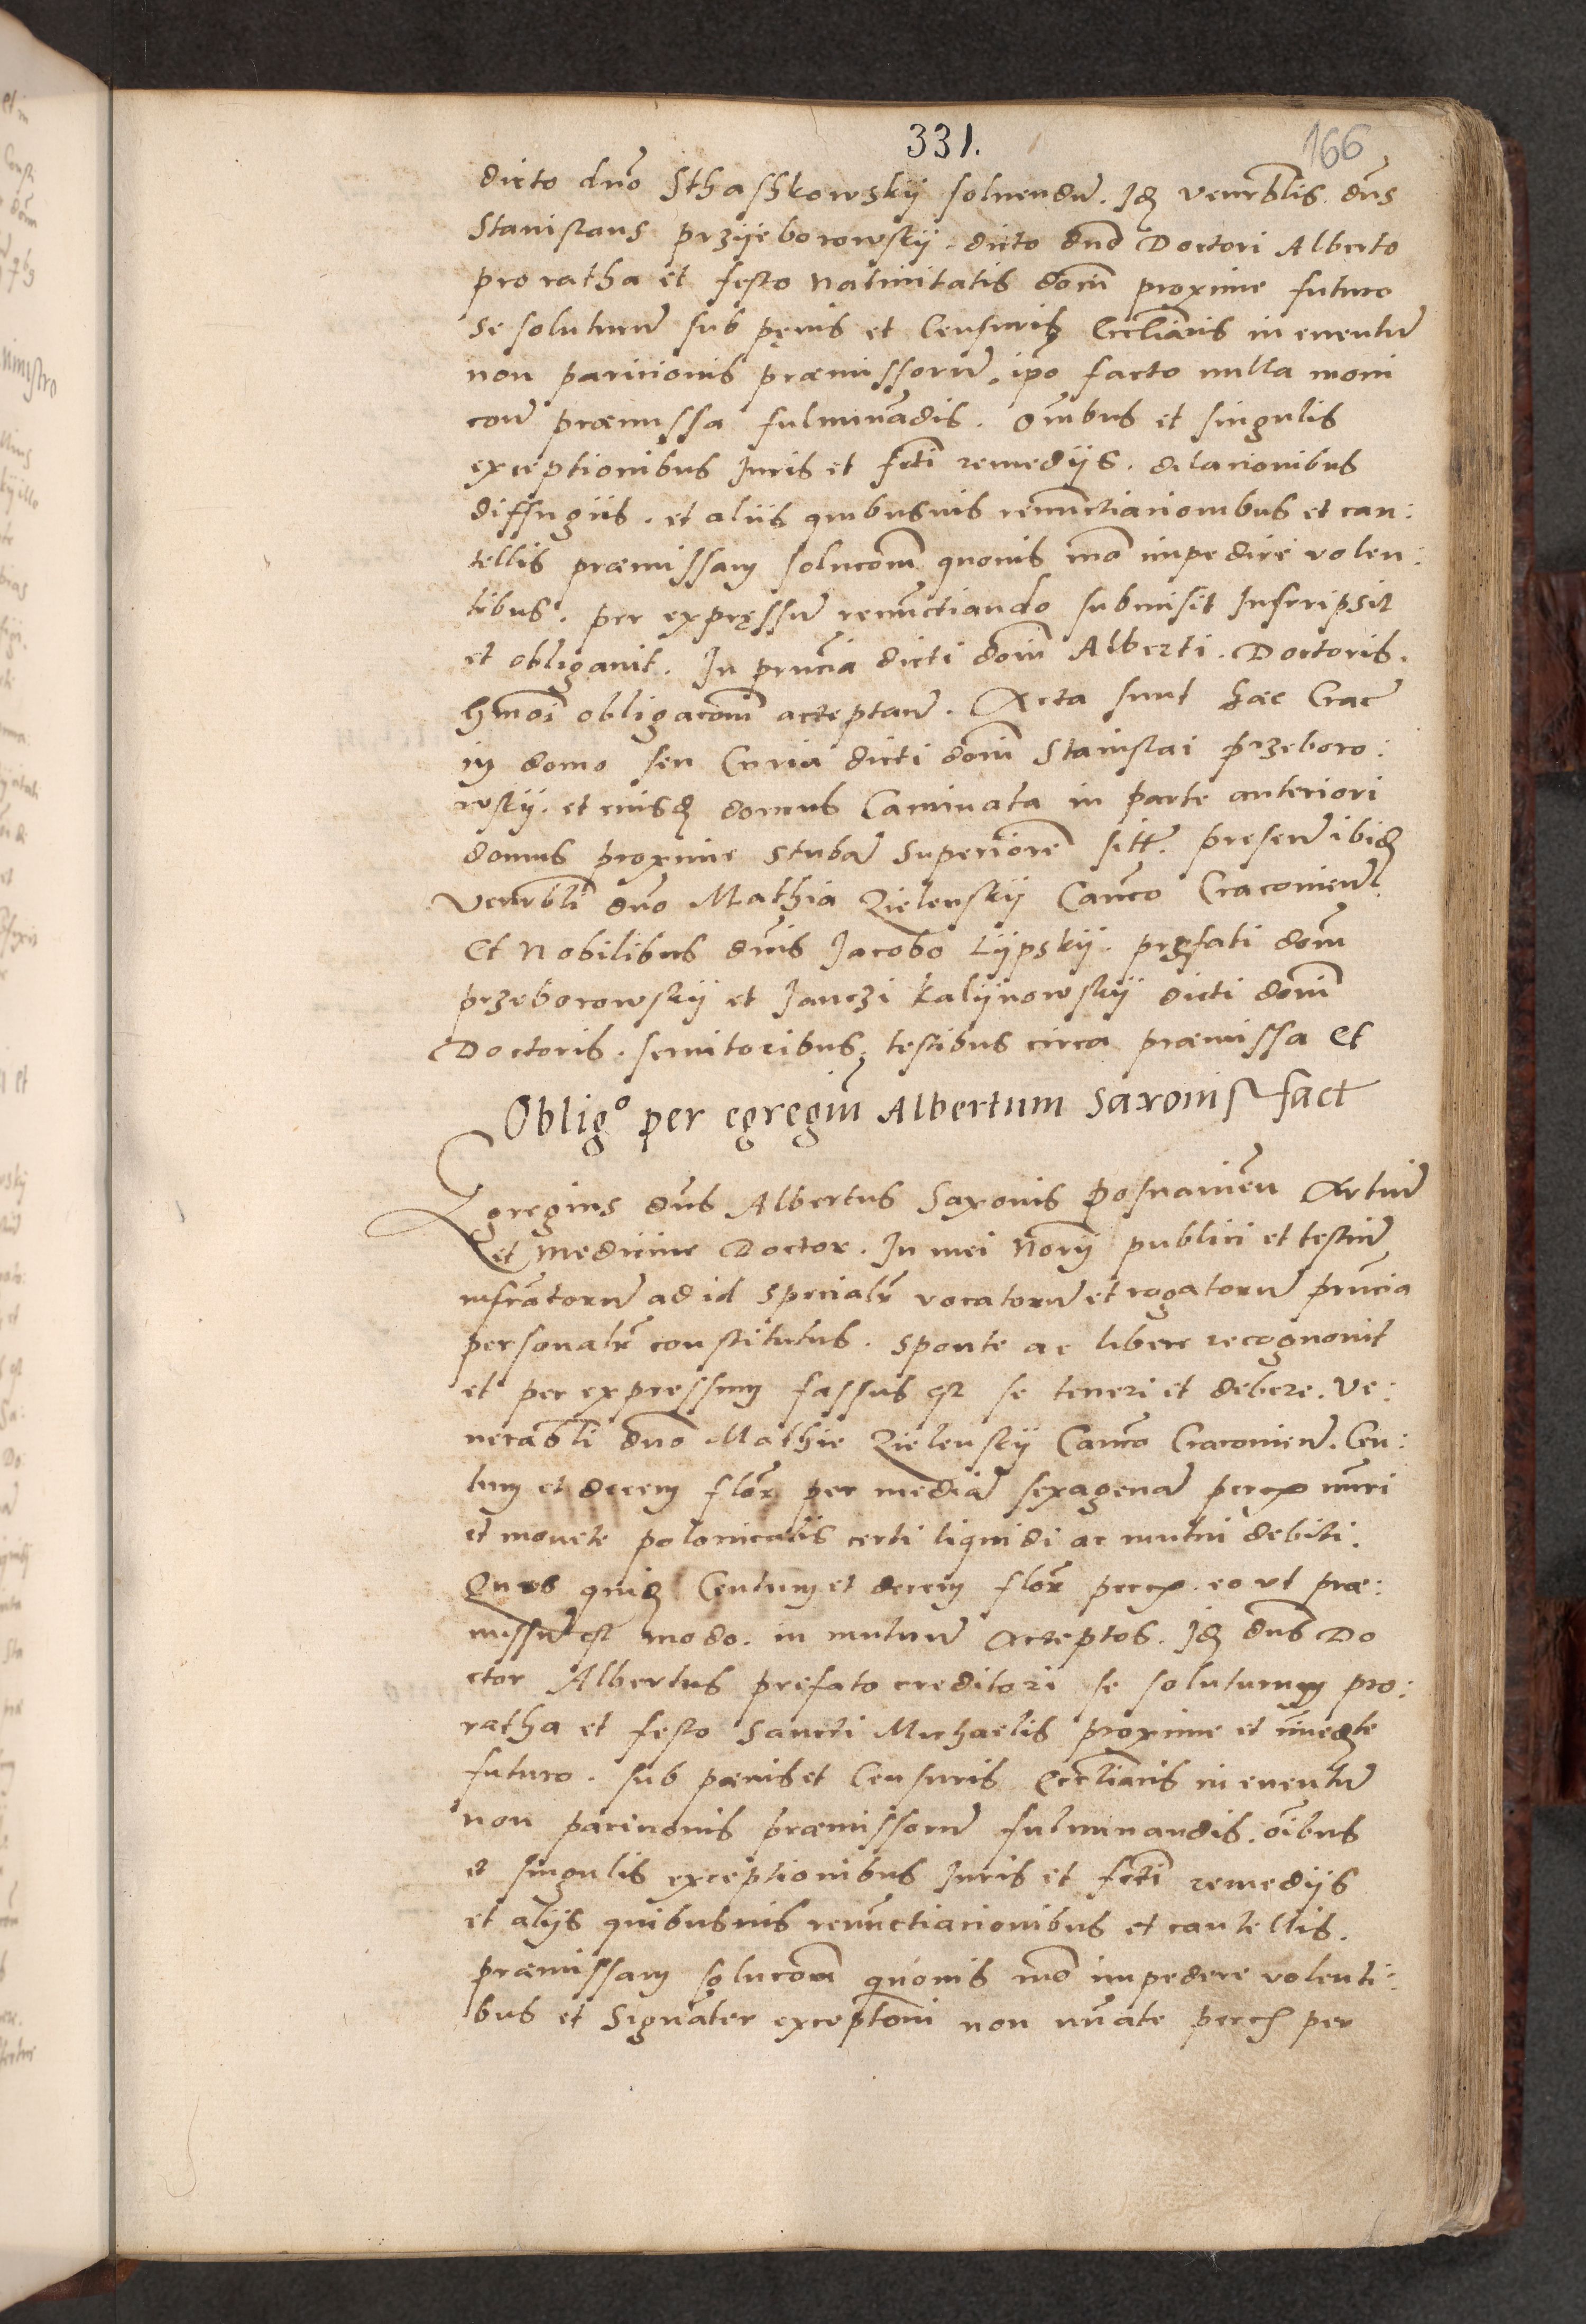 331.
166
dicto dno Sthashkowskij soluendū. Idē venerblis dns
Stanislaus przijeborowskij. dicto dno Doctori Alberto
pro ratha et festo Natiuitatis domi proxime futuro
se soluturū sub pęnis et Censuris Ecclīacis in euentū
non paricionis præmissorū. ipō facto nulla moni
coē præmissa fulminādis. omībus et singulis
exceptionibus Iuris et fcti remedijs. dilacionibus
diffugiis. et aliis quibusuis renūctiacionibus et cau:
tellis præmissam solucoēm quouis mō impedire volen:
tibus. per expręssū renūctiando submisit Inscripsit
et obligauit. In pnčia dicti domi Alberti. Doctoris.
Hmōi obligacoēm acceptaņ. Acta sunt hæc Crac
in domo seu Curia dicti domi Stanislai przeboro:
wskij. et eiusdē domus Caminata in parte anteriori
domus proxime stubā Superiorē sitt. presen ibidē
venerbli dno Mathia Zielenskij Canco Cracouien.
Et Nobilibus dnis Jacobo Lijpskij. pręfati domi
przeborowskij et Janczi Kalijnowskij dicti domi
Doctoris. seruitoribus, testibus circa præmissa Et
Obligo per egregiū Albertum Saxonis fact
Egregius dns Albertus Saxonis Posnanien Artiū
et Medicine Doctor. In mei Norij publici et testiū
infrāctorū ad id specialr vocatorū et rogatorū pnčia
personalr constitutus. sponte ac libere recognouit
et per expressum fassus est se teneri et debere. Ve:
nerabli dno Mathie Zielenskij Canco Cracouien. Cen:
tum et decem flor per mediā sexagenā pecc nuri
et monete polonicalis certi liquidi ac mutui debiti.
Quos quidē Centum et decem flor pecc. eo vt præ:
missū est modo. in mutuū Acceptos. Idē dns Do
ctor Albertus prefato creditori se soluturum pro:
ratha et festo Sancti Michaelis proxime et immedte
futuro. sub pænis et Censuris Ecclīacis in euentū
non paricionis præmissorū fulminandis. oībus
et singulis exceptionibus Iuris et fcti remedijs
et alijs quibusuis renūctiacionibus et cautellis.
præmissam solucoēm quouis mō impedere volenti:
bus et Signāter exceptioni non nūate pecc per